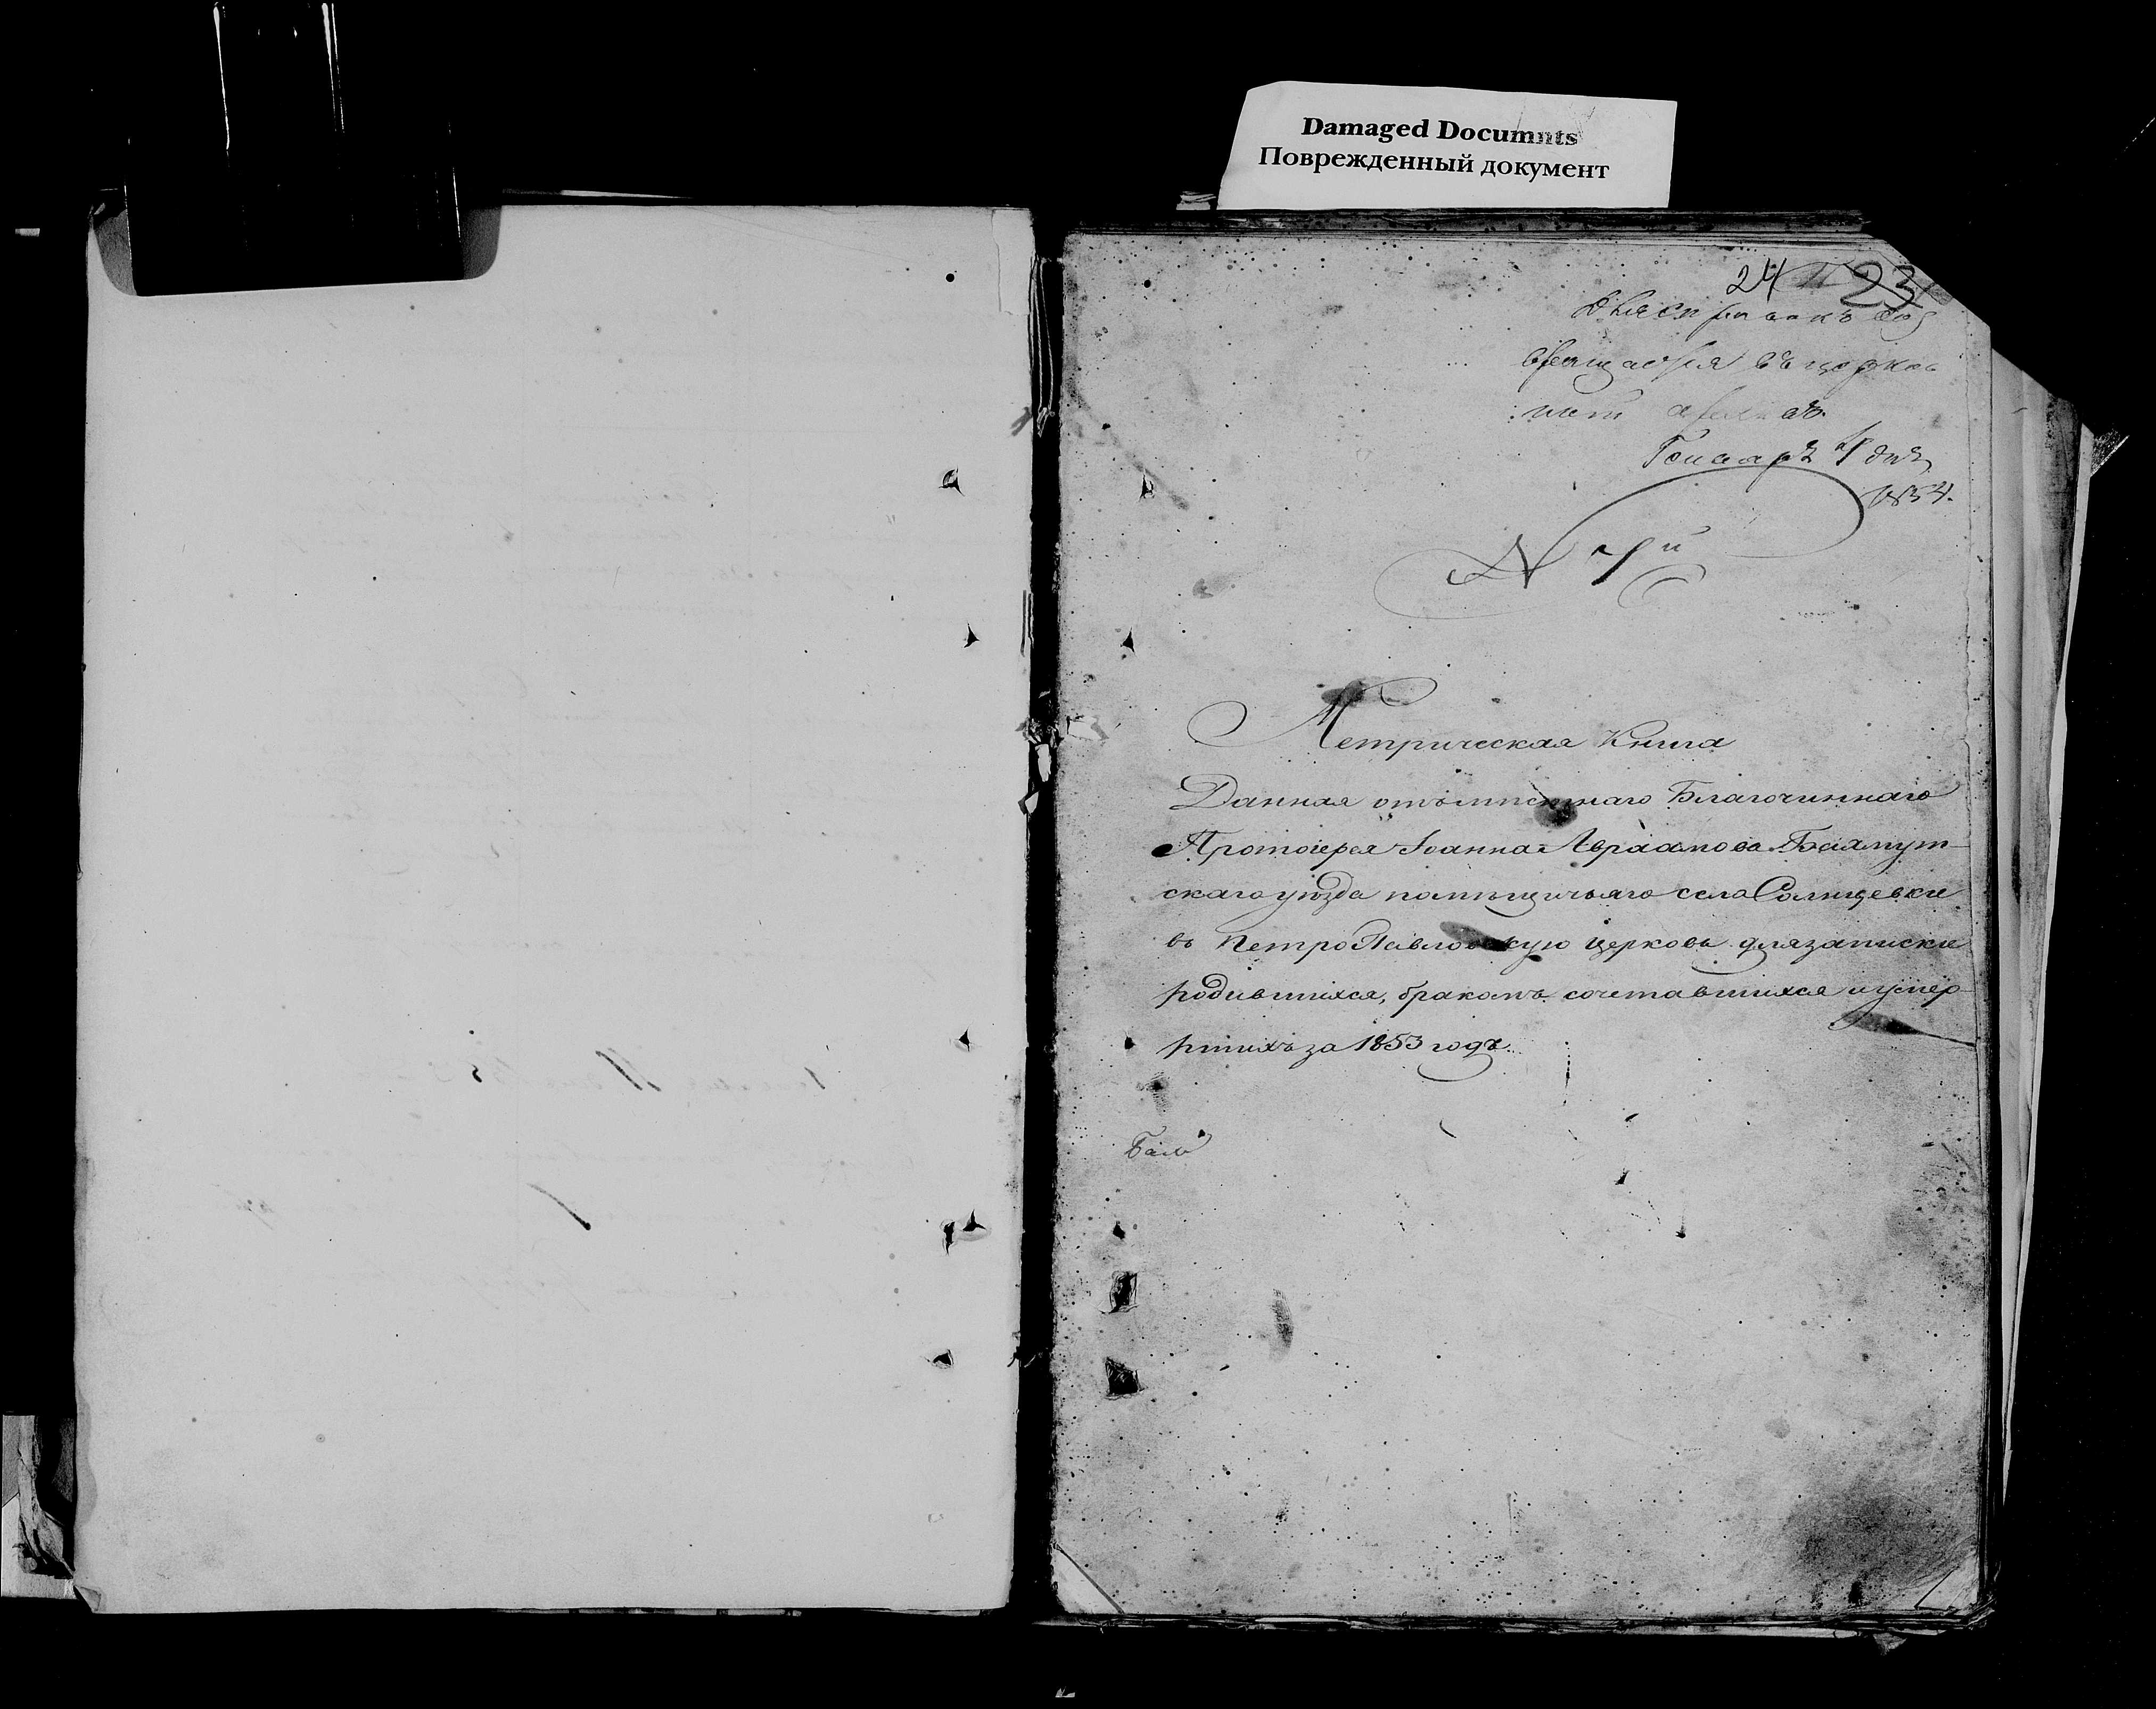 Damaged Documnts
Поврежденный документ
24 23
въ церков
архивъ.
1854.
N
Метрическая Книга
Данная отъ местнаго Благочиннаго
Протоіерея Іоанна Авраамова Бахмут-
скаго уезда помещичьяго села Солнцевки
въ Петро Павловскую церковь для записки
родившихся, бракомъ сочетавшихся и умер-
ршихъ за 1853 годъ.